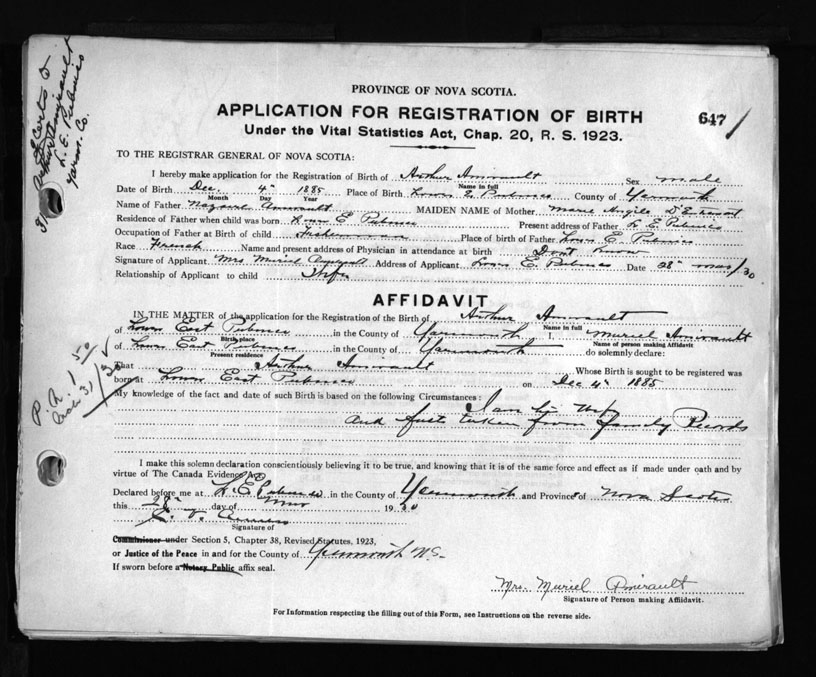 PROVINCE OF NOVA SCOTIA.
APPLICATION FOR REGISTRATION OF BIRTH
647
Under the Vital Statistics Act, Chap. 20, R. S. 1923.
TO THE REGISTRAR GENERAL OF NOVA SCOTIA:
I hereby make application for the Registration of Birth of Arthur Amirault Sex male
Name in full
Date of Birth Dec. 4th 1885 Place of Birth Lower E. Pubnico County of Yarmouth
Month Day Year
Name of Father Amirault MAIDEN NAME of Mother Marie D'Entremont
Residence of Father when child was born Lower E Pubnico Present address of Father L. E. Pubnico
Occupation of Father at Birth of child Fisherman Place of birth of Father Lower E. Pubnico
Race French Name and present address of Physician in attendance at birth Dont Know
Signature of Applicant Mrs Muriel Amirault Address of Applicant Lower E. Pubnico Date 28th Mar/30
Relationship of Applicant to child Wife
AFFIDAVIT
IN THE MATTER of the application for the Registration of the Birth of Arthur Amirault
Name in full
of Lower East Pubnico in the County of Yarmouth I, Muriel Amirault
Birth place
Name of person making Affidavit
of Lower East Pubnico in the County of Yarmouth do solemnly declare:
Present residence
That Arthur Amirault Whose Birth is sought to be registered was
born at Lower East Pubnico on Dec 4th 1885
My knowledge of the fact and date of such Birth is based on the following Circumstances: I am his Wife
and facts taken from family Records
I make this solemn declaration conscientiously believing it to be true, and knowing that it is of the same force and effect as if made under oath and by
virtue of The Canada Evidence Act.
Declared before me at L. E. Pubnico in the County of Yarmouth and Province of Nova Scotia
this 28th day of Mar 1930
Signature of
Commissioner under Section 5, Chapter 38, Revised Statutes, 1923,
or Justice of the Peace in and for the County of Yarmouth N.S.
If sworn before a Notary Public affix seal.
Mrs. Muriel Amirault
Signature of Person making Affidavit.
For Information respecting the filling out of this Form, see Instructions on the reverse side.
L. E. Pubnico
Yarm. Co.